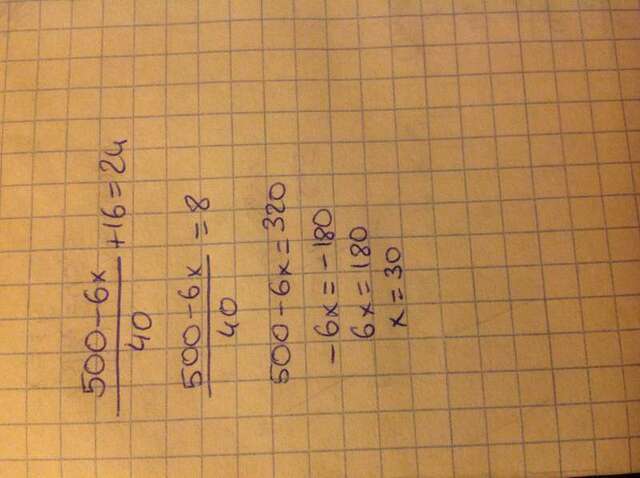 500-6x
40 +16=24
500-6x
40 =8
500-6x=320
-6x=-180
6x=180
x=30